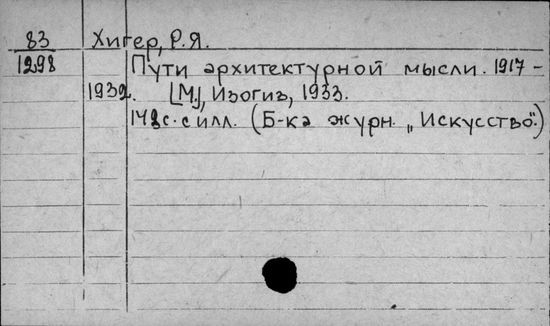 83 Хигер, Р.Я.
1298 Пути архитектурной мысли. 1917-
1932. [М.], Изогиз, 1933.
с. с илл. (Б-ка журн. „Искусство".)